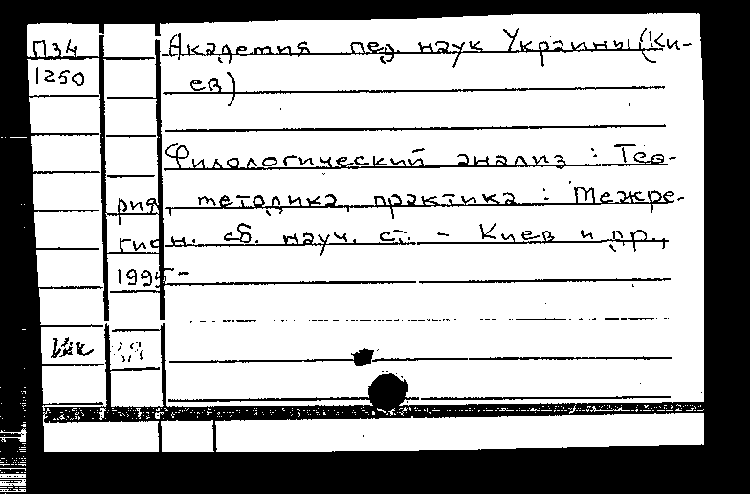 П34
1250
Академия пед. наук Украины (Ки-
ев)
Филологический анализ : Тео-
рия, методика, практика : Межре-
гион. сб. науч. ст. - Киев и др.,
1995-